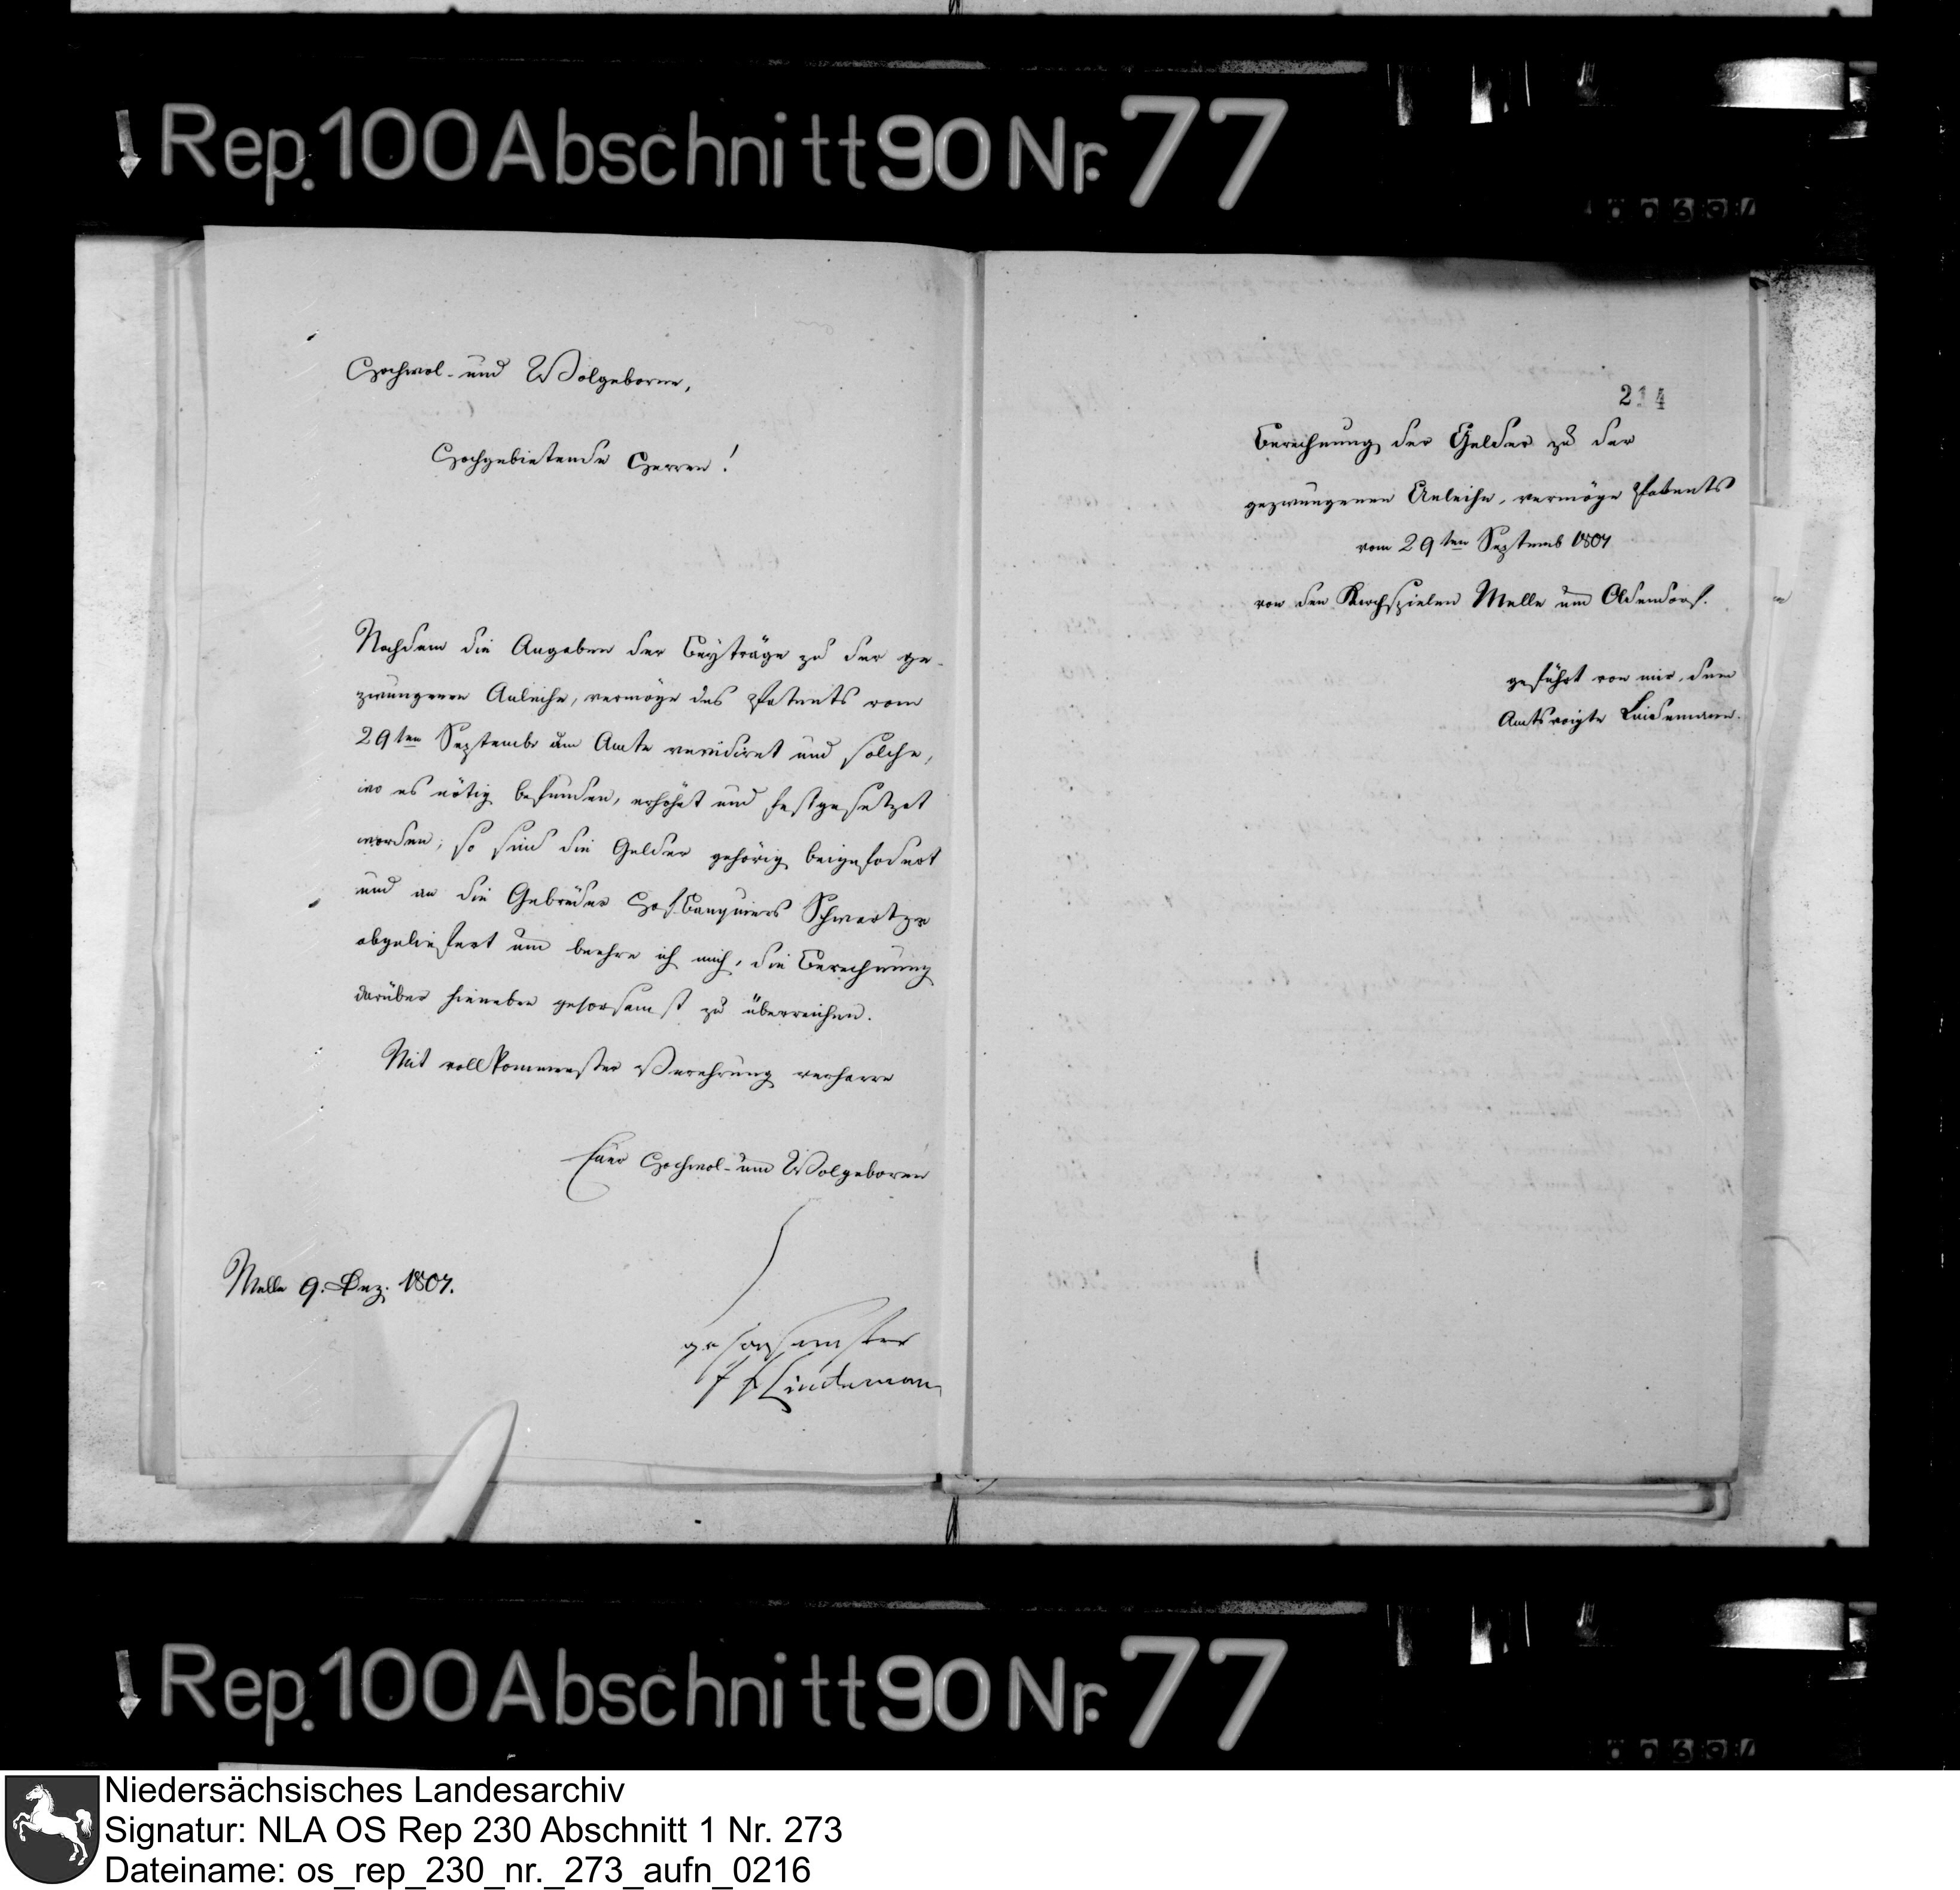 Rep. 100 Abschnitt 90 Nr. 77
Hochwol- und Wolgeborne,
Hochgebietende Herren!
Nachdem die Angaben der Beyträge zu der ge-
zwungenen Anleihe, vermöge des Patents vom
29ten Septembr am Amte revidiret und solche,
wo es nötig befunden, erhöhet und festgesetzet
worden; so sind die Gelder gehörig beigefodert
und an die Gebrüder HofBanquiers Schwartze
abgeliefert und beehre ich mich, die Berechnung
darüber hieneben gehorsamst zu überreichen.
Mit vollkommenster Verehrung verharre
Euer Hochwol- und Wolgeboren
Melle 9. Dez. 1807.
gehorsamster
Lindemann
214
Berechnung der Gelder zu der
gezwungenen Anleihe, vermöge Patents
vom 29ten Septemb 1807
von den Kirchspielen Melle und Oldendorf.
geführt von mir, dem
Amtsvoigte Lindemann.
Rep. 100 Abschnitt 90 Nr. 77
Niedersächsisches Landesarchiv
Signatur: NLA OS Rep 230 Abschnitt 1 Nr. 273
Dateiname: os_rep_230_nr._273_aufn_0216